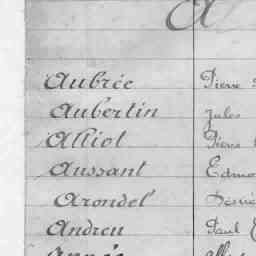 A
Aubrée Pierre
Aubertin Jules
Alliot Pierre
Aussant Edmo
Arondel Désiré
Andreu Paul